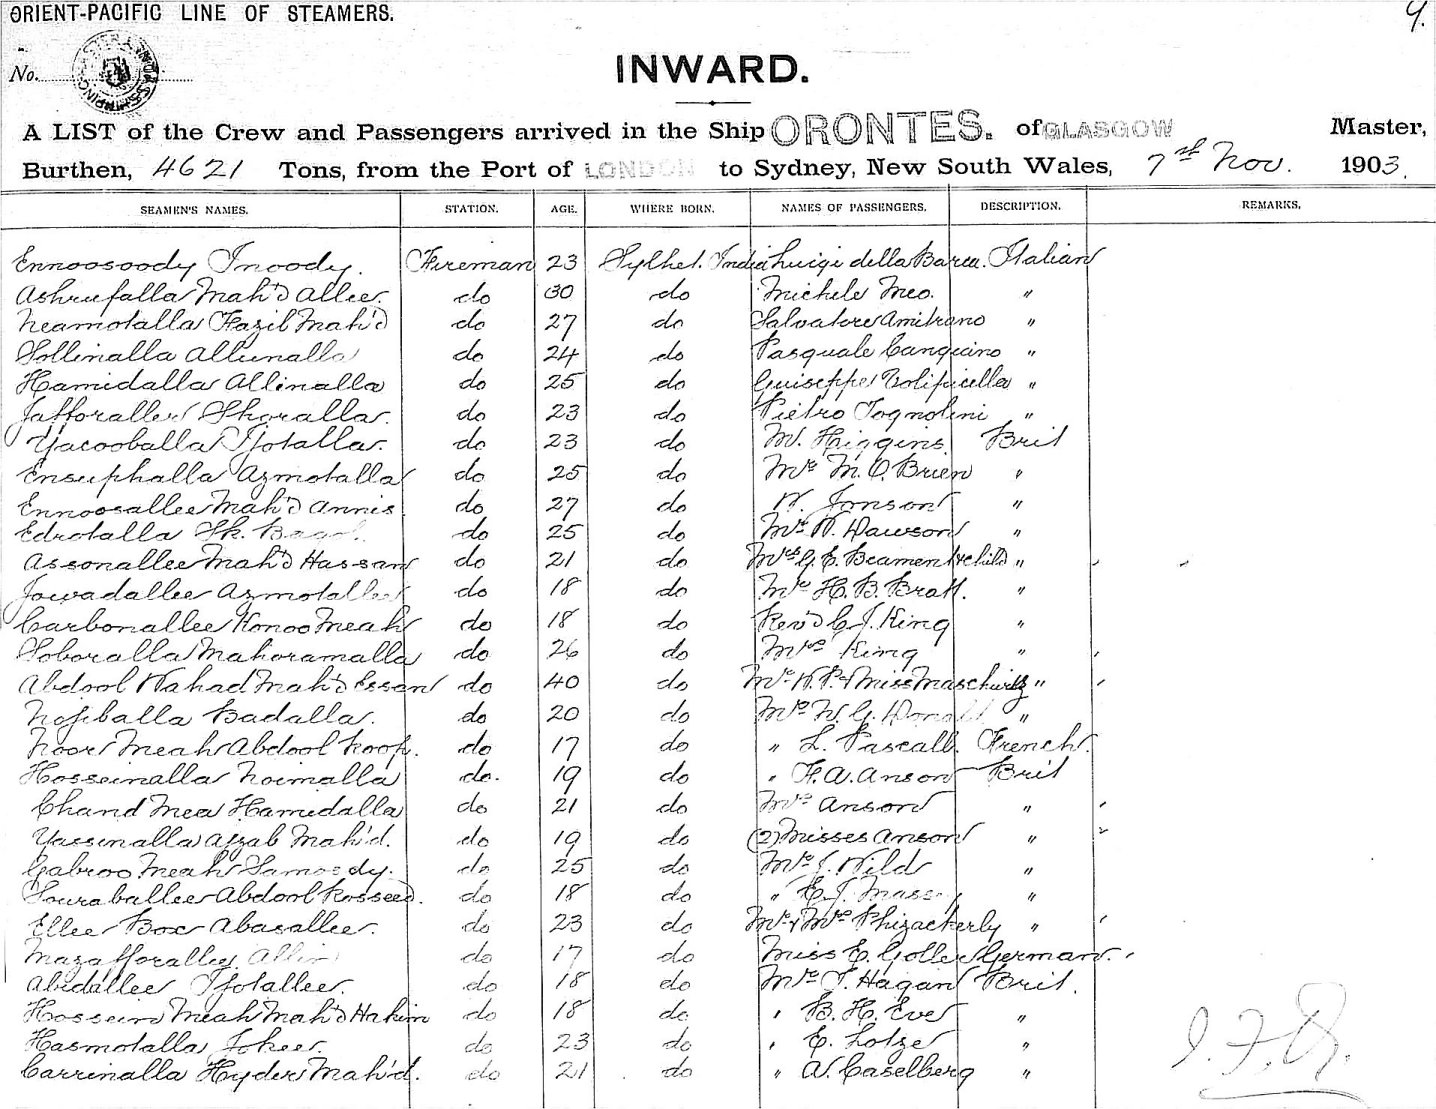 ORIENT-PACIFIC LINE OF STEAMERS. 4.
No.
INWARD.
A LIST of the Crew and Passengers arrived in the Ship ORONTES. of GLASGOW Master,
Burthen, 4621 Tons, from the Port of LONDON to Sydney, New South Wales, 7th Nov. 1903.
SEAMEN'S NAMES. STATION. AGE. WHERE BORN. NAMES OF PASSENGERS. DESCRIPTION. REMARKS.
Ennoosoody Inoody. Fireman 23 Sylhet. India Luigi della Barca. Italian
Ashrufalla Mah'd Allee. do 30 do Michele Meo. "
Neamotalla Fazil Mah'd do 27 do Salvatore Amitrano "
Sollinalla Allimalla do 24 do Pasquale Cangiano "
Hamidalla Allinalla do 25 do Guiseppe Tolipicella "
Jafforallee Skoralla. do 23 do Pietro Tognolini "
Yacooballa Isfotalla. do 23 do W. Higgins. Brit
Ensuphalla Azmotalla do 25 do Mrs M. O'Brien "
Ennoosallee Mah'd Annis. do 27 do W. Jonson "
Edrotalla Sk. do 25 do Mr W. Dawson "
Assonallee Mah'd Hassan do 21 do Mrs G. E. Beament & child "
Jowadallee Azmotallee do 18 do Mr H. B. Bratt. "
Carbonallee Konoo Meah do 18 do Rev'd C. J. King "
Soboralla Mahoramalla do 26 do Mrs King "
Abdool Wahad Mah'd Essan do 40 do Mr W. P. & Miss Maschwitz "
Nosiballa Badalla. do 20 do Mr W. G. Donald "
Noor Meah Abdool Roof. do 17 do " L. Pascall. French.
Hosseinalla Noimalla do. 19 do " F. A. Anson Brit
Chand Mea Hamedalla do 21 do Mrs Anson "
Yassinalla Ajzab Mah'd. do 19 do (2) Misses Anson "
Gabroo Meah Samoody. do 25 do Mr J. Wild "
Souraballee Abdool Rosseed. do 18 do " E. J. "
Ellee Box Abasallee. do 23 do Mr & Mrs Phizackerly "
Mazafforalley do 17 do Miss E. Goller German.
Abidallee Isfotallee. do 18 do Mr T. Hagan Brit.
Hossein Meah Mah'd Hakim do 18 do " B. H. Eve "
Hasmotalla Jokee. do 23 do " E. Lotze "
Carrinalla Hyder Mah'd. do 21 do " A. Caselberg "